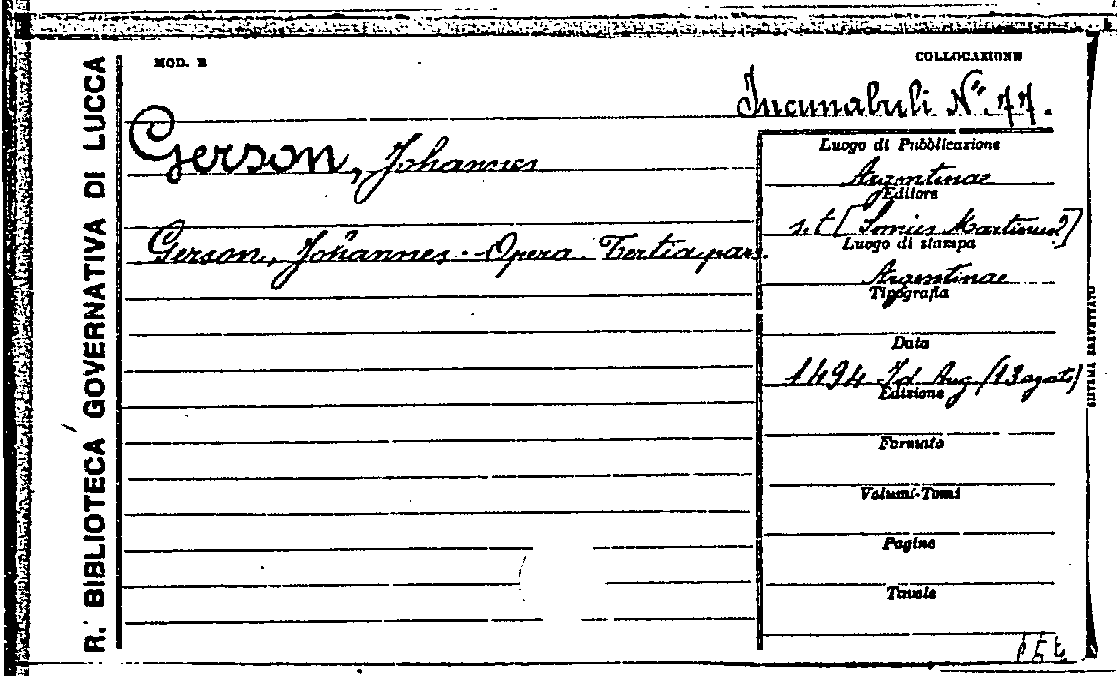 MOD. B
COLLOCAZIONE
Incunabuli N° 77.
R. BIBLIOTECA GOVERNATIVA DI LUCCA
Gerson, Johannes
Gerson, Johannes. Opera. Tertia pars.
Luogo di Pubblicazione
Argentinae
Editore
s.t [ Martinus?]
Luogo di stampa
Argentinae
Tipografia
Data
1494 Id Aug (13 agosto)
Edizione
Formato
Volumi-Tomi
Pagine
Tavole